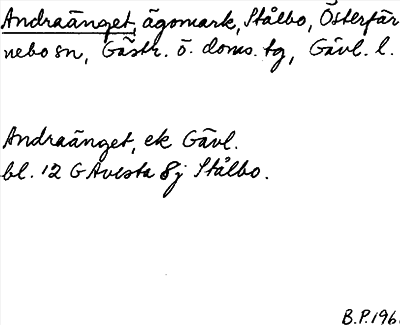 Andraänget, ägomark, Stålbo, Österfär
nebo sn, Gästr. ö. doms. tg, Gävl. l.
Andraänget, ek Gävl.
bl. 12 G Avesta 8j Stålbo.
B.P.196